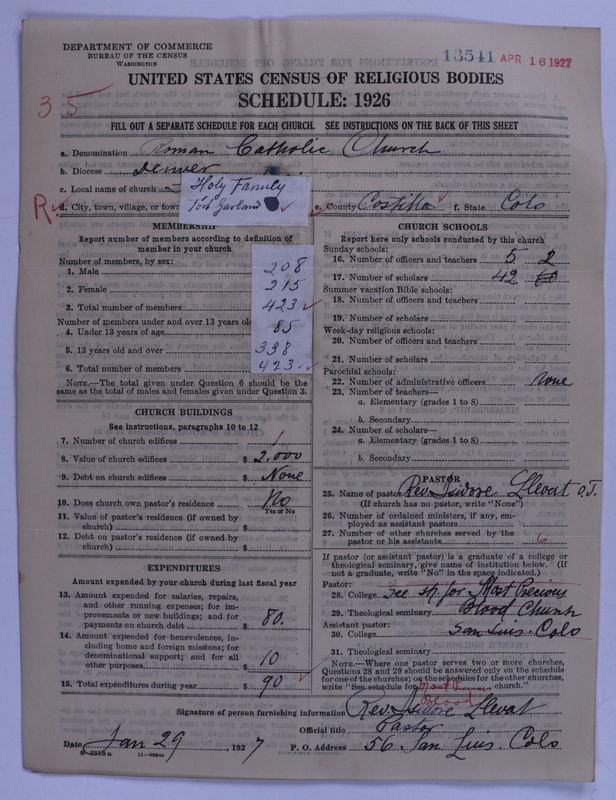 DEPARTMENT OF COMMERCE
BUREAU OF THE CENSUS
WASHINGTON
13541 APR 16 1927
UNITED STATES CENSUS OF RELIGIOUS BODIES
SCHEDULE: 1926
35
FILL OUT A SEPARATE SCHEDULE FOR EACH CHURCH. SEE INSTRUCTIONS ON THE BACK OF THIS SHEET
a. Denomination Roman Catholic Church
b. Diocese Denver
c. Local name of church Holy Family
d. City, town, village, or town Fort Garland e. County Costilla f. State Colo
MEMBERSHIP
Report number of members according to definition of
member in your church
Number of members, by sex:
1. Male 208
2. Female 215
3. Total number of members 423
Number of members under and over 13 years old
4. Under 13 years of age 85
5. 13 years old and over 338
6. Total number of members 423
NOTE.—The total given under Question 6 should be the
same as the total of males and females given under Question 3.
CHURCH BUILDINGS
See instructions, paragraphs 10 to 12
7. Number of church edifices 1
8. Value of church edifices $ 2,000
9. Debt on church edifices $ None
10. Does church own pastor's residence No
Yes or No
11. Value of pastor's residence (if owned by
church) $
12. Debt on pastor's residence (if owned by
church) $
EXPENDITURES
Amount expended by your church during last fiscal year
13. Amount expended for salaries, repairs,
and other running expenses; for im-
provements or new buildings; and for
payments on church debt $ 80.
14. Amount expended for benevolences, in-
cluding home and foreign missions; for
denominational support; and for all
other purposes $ 10
15. Total expenditures during year $ 90
CHURCH SCHOOLS
Report here only schools conducted by this church
Sunday schools:
16. Number of officers and teachers 5 2
17. Number of scholars 42 60
Summer vacation Bible schools:
18. Number of officers and teachers
19. Number of scholars
Week-day religious schools:
20. Number of officers and teachers
21. Number of scholars
Parochial schools:
22. Number of administrative officers None
23. Number of teachers—
a. Elementary (grades 1 to 8)
b. Secondary
24. Number of scholars—
a. Elementary (grades 1 to 8)
b. Secondary
PASTOR
25. Name of pastor Rev. Isidore Llevat
(If church has no pastor, write "None")
26. Number of ordained ministers, if any, em-
ployed as assistant pastors
27. Number of other churches served by the
pastor or his assistants 6
If pastor (or assistant pastor) is a graduate of a college or
theological seminary, give name of institution below. (If
not a graduate, write "No" in the space indicated.)
Pastor:
28. College See for Most Precious
29. Theological seminary Blood Church
Assistant pastor:
30. College San Luis. Colo
31. Theological seminary
NOTE.—Where one pastor serves two or more churches,
Questions 28 and 29 should be answered only on the schedule
for one of the churches; on the schedules for the other churches,
write "See schedule for Most Precious Blood church."
Signature of person furnishing information Rev. Isidore Llevat
Official title Pastor
Date Jan 29, 1927 P. O. Address 56 San Luis. Colo